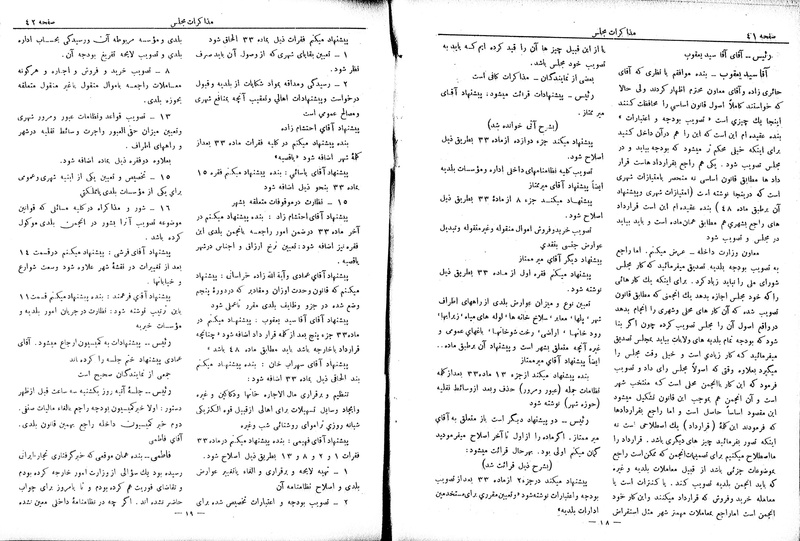 صفحه ۴۱
مذاکرات مجلس
رئیس ـ آقای آقا سید یعقوب
آقا سید یعقوب ـ بنده موافقم با نظری که آقای
حائری زاده و آقای معاون محترم اظهار کردند ولی حالا
که خواستند کاملاً اصول قانون اساسی را محافظت کنند
اینجا یك چیزی است « تصویب بودجه و اعتبارات »
بنده عقیده ام این است که این را هم درآن داخل کنید
برای اینکه خیلی محکم تر میشود که بودجه بیاید و در
مجلس تصویب شود . یکی هم راجع بقرارداد هاست قرار
داد ها مطابق قانون اساسی نه منحصر بامتیازات شهری
است که دراینجا نوشته است ( امتیازات شهری و پیشنهاد
آن برطبق ماده ۴۸ ) بنده عقیده ام این است قرارداد
های راجع بشهری هم مطابق همان ماده است و باید بیاید
در مجلس و تصویب شود
معاون وزارت داخله ـ عرض میکنم . اما راجع
به تصویب بودجه بلدیه تصدیق میفرمائید که کار مجلس
شورای ملی را نباید زیاد کرد . برای اینکه یك کارهائی
را که خود مجلس اجازه بدهد یك انجمنی که مطابق قانون
تصویب شده که آن کار های محلی و شهری را انجام بدهد
درواقع اصول آن را مجلس تصویب کرده چون اگر بنا
شود که بودجه تمام بلدیه های ولایات بیاید بمجلس تصدیق
میفرمائید که کار زیادی است و خیلی وقت مجلس را
میگیرد بعلاوه وقتی که اصولا یك مجلس رای داد و تصویب
فرمود که این کار باانجمن محلی است که منتخب شهر
است و آن انجمن هم بموجب این قانون تشکیل میشود
این مقصود اساساً حاصل است و اما راجع بقراردادها
که فرمودند این کلمهٔ ( قرارداد ) یك اصطلاحی است نه
اینکه تصور بفرمائید چیز های دیگری باشد . قرارداد را
مااصطلاح میکنیم برای تصمیمات انجمن که ممکن است راجع
بموضوعات جزئی باشد از قبیل معاملات بلدیه و غیره
که باید انجمن بلدیه تصویب کند . یا کنترات است یا
معامله خرید وفروش که قرارداد میکنند واین کار خود
انجمن است امراجع بمعاملات مهمتر شهر مثل استقراض
یا از این قبیل چیز ها آن را قید کرده ایم که باید به
تصویب خود مجلس باشد .
بعضی از نمایندگان ـ مذاکرات کافی است
رئیس ـ پیشنهادات قرائت میشود . پیشنهاد آقـای
میر ممتاز .
(بشرح آتی خوانده شد)
پیشنهاد میکند جزء دوازده ازماده ۳۳ بطریق ذیل
اصلاح شود .
تصویب کلیه نظامنامهای داخلی اداره ومؤسسات بلدیه
ایضاً پیشنهاد آقای میر ممتاز
پیشنهـاد میکند جزء ۸ از مادهٔ ۳۳ بطریق ذیل
اصلاح شود .
تصویب خرید و فروش اموال منقوله و غیرمنقوله و تبدیل
عوارض جنسی بنقدی
پیشنهاد دیگر آقای میر ممتاز
پیشنهاد میکنم فقره اول از ماده ۳۳ بطریق ذیل
نوشته شود .
تعیین نوع و میزان عوارض بلدی ازراههای اطراف
شهر ؛ پلها ؛ معابر ؛ سلاخ خانه ها ؛ لوله های میاه ؛ زیرابها ؛
رود خانها ؛ اراضی ؛ رخت شوخانها ؛ باغهای عمومی و
غیره آنچه متعلق بشهر است و پیشنهاد آن بطبق ماده ..
ایضاً پیشنهاد آقای میر ممتاز
پیشنهاد میکند ازجزء ۱۳ ماده ۳۳ بعدازکلمه
نظامات جمله (عبور ومرور) حذف وبعد ازوسائط نقلیه
(حوزه شهر) نوشته شود
رئیس ـ دو پیشنهاد دیگر است باز متعلق به آقای
میر ممتاز . اگر ماده را از اول تا آخر اصلاح میفرمودید
گمان میکنم اولی بود . بهرحال قرائت میشود :
(بشرح ذیل قرائت شد)
پیشنهاد میکند درجزء۲ ازماده ۳۳ بعد از تصویب
بودجه و اعتبارات نوشته شود « و تعیین مقرری برای مستخدمین
ادارات بلدیه »
ـ ۱۸ ـ
مذاکرات مجلس
صفحه ۴۲
پیشنهاد میکنم فقرات ذیل بماده ۳۳ الحاق شود
۱ ـ تعیین بقایای شهری که از وصول آن باید صرف
نظر شود .
۲ ـ رسیدگی و مداقه بمواد شکایات از بلدیه وقبول
درخواست وپیشنهادات اهالی وتعقیب آنچه بمنافع شهری
و مصالح عمومی است
پیشنهاد آقای احتشام زاده
بنده پیشنهاد میکنم در کلیه فقرات ماده ۳۳ بعداز
کلمهٔ شهر اضافه شود « یاقصبه »
پیشنهاد آقای یاسائی : بنده پیشنهاد میکنم فقره ۱۵
بماده ۳۳ بنحو ذیل اضافه شود
۱۵ ـ نظارت درموقوفات متعلقه بشهر
پیشنهاد آقای احتشام زاده : بنده پیشنهاد میکنم در
آخر ماده ۳۳ درضمن امور راجعـه بانجمن بلدی این
فقره نیز اضافه شود: تعیین نرخ ارزاق و اجناس درشهر
یاقصبه .
پیشنهاد آقای عمادی و آیة الله زاده خراسانی : پیشنهاد
میکنم که قانون وحدت اوزان ومقادیر که دردوره پنجم
وضع شده در جزو وظایف بلدی مقرر تا عملی شود
پیشنهاد آقای آقا سید یعقوب : پیشنهاد میکنم در
ماده۳۳ جزء پنج بعد از کلمه قرار داد اضافه شود « چنانچه
قرارداد باخارجه باشد باید مطابق ماده ۴۸ باشد »
پیشنهاد آقای سهراب خان : بنده پیشنهاد میکنم این
بند الحاقی ذیل بماده ۳۳ اضافه شود :
تنظیم و برقراری مال الاجاره خانها و دکاکین و غیره
وایجاد وسایل تسهیلات برای اهالی ازقبیل قوه الکتریکی
شبانه روزی تراموای روشنائی شب وغیره
پیشنهاد آقای فهیمی : بنده پیشنهاد میکنم درماده ۳۳
فقرات ۱ و ۲ و ۸ و ۱۳ بطریق ذیل اصلاح شود .
۱ ـ تهیه لایحه و برقراری و الغاء یاتغییر عوارض
بلدی و اصلاح نظامنامه آن
۲ ـ تصویب بودجه و اعتبارات تخصیص شده برای
بلدی ومؤسسه مربوطه آن ورسیدگی بحساب اداره
بلدی و تصویب لایحه تفریغ بودجه آن .
۸ ـ تصویب خرید و فروش و اجاره و هرگونه
معاملات راجعـه باموال منقول یاغیر منقول متعلقه
بحوزه بلدی .
۱۳ ـ تصویب قواعد و نظامات عبور ومرور شهری
وتعیین میزان حق العبور واجرت وسائط نقلیه درشهر
و راههای اطراف .
بعلاوه دوفقره ذیل بماده اضافه شود .
۱۵ ـ تخصیص و تعیین یکی از ابنیه شهری وعمومی
برای یکی از مؤسسات بلدی یامملکتی
۱۶ ـ شور و مذاکره در کلیه مسائلی که قوانین
موضوعه تصویب آنرا بشور در انجمن بلدی موکول
کرده باشد .
پیشنهاد آقای قرشی : پیشنهاد میکنم درقسمت ۱۴
بعد از تغییرات در نقشهٔ شهر علاوه شود وسعت شوارع
و خیابانها .
پیشنهاد آقای فرهمند : بنده پیشنهاد میکنم قسمت۱۱
باین ترتیب نوشته شود : نظارت درجریان امور بلدیه و
مؤسسات خیریه
رئیس ـ پیشنهادات به کمیسیون ارجاع میشود . آقای
عمادی پیشنهاد ختم جلسه را کرده اند
جمعی از نمایندگان صحیح است
رئیس ـ جلسهٔ آتیه روز یکشنبه سه ساعت قبل ازظهر
دستور : اولا خبر کمیسیون بودجه راجع بالغاء مالیات صنفی .
دوم خبر کمیسیون داخله راجع بهمین قانون بلدی .
آقای فاطمی
فاطمی ـ بنده همان موقعی که خبر گرفتاری تجار ایرانی
رسیده بود یك سؤالی از وزارت امور خارجه کرده بودم
و تقاضای فوریت هم کرده بودم و تا بامروز برای جواب
حاضر نشده اند . اگر چه در نظامنامهٔ داخلی معین نشده
ـ ۱۹ ـ